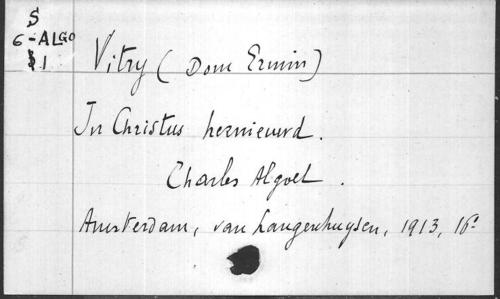 S
6-ALGO
$1
Vitry (Dom Ermin)
In Christus hernieuwd.
Charles Algoet.
Amsterdam, van Langenhuysen, 1913, 16°